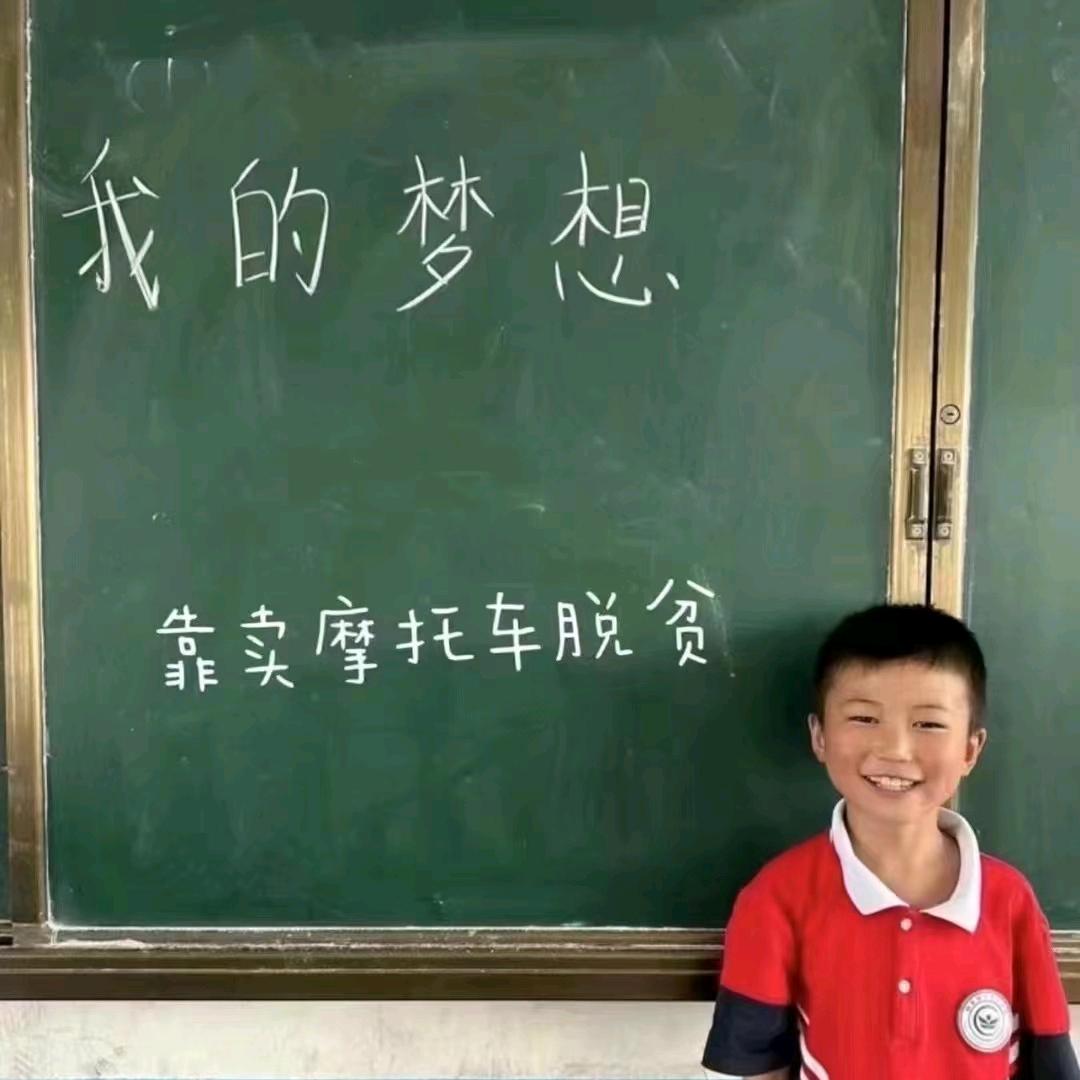 我的梦想
靠卖摩托车脱贫